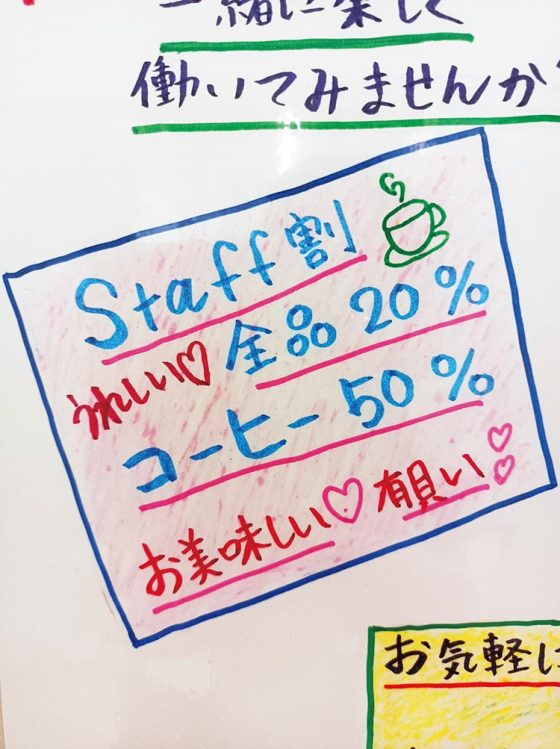 一緒に楽しく
働いてみませんか
Staff割
うれしい♡ 全品 20%
コーヒー 50%
お美味しい♡ 有貝い♡♡
お気軽に